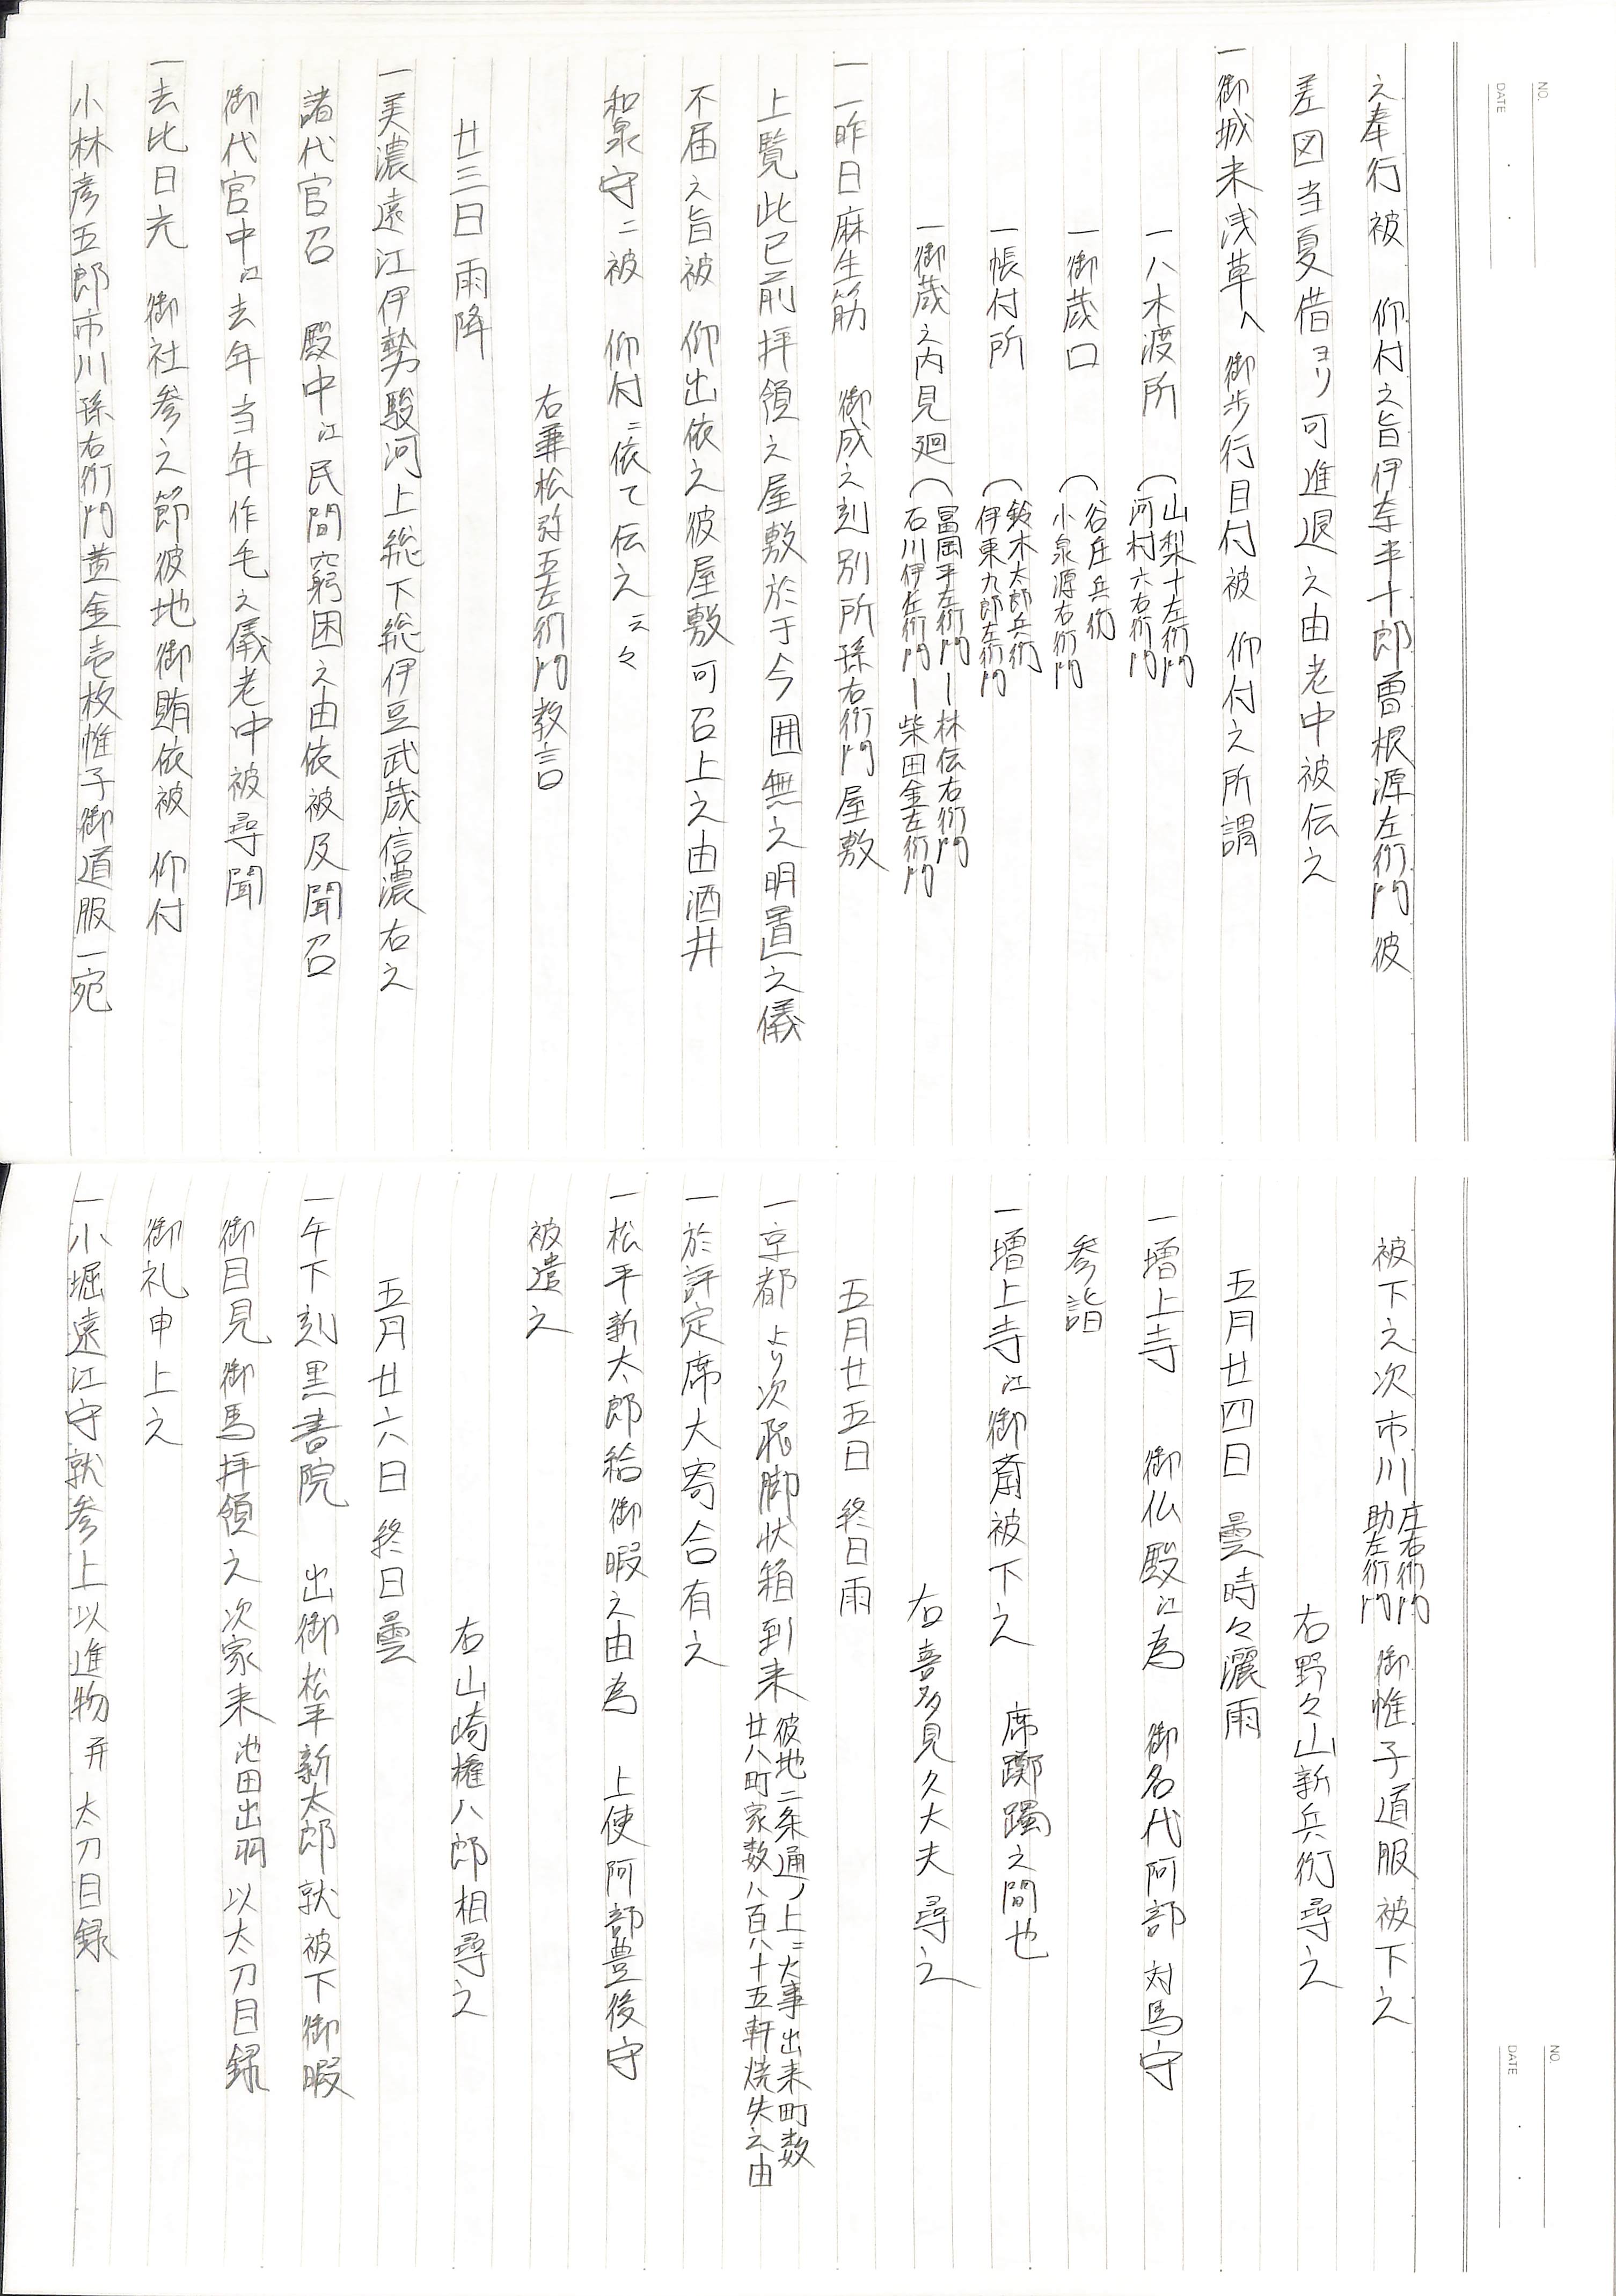 NO.
DATE
之奉行被 仰付之旨伊奈半十郎曽根源左衛門彼
差図当夏借ヨリ可進退之由老中被伝之
一御城米浅草へ御歩行目付被 仰付之所謂
一八木渡所(山梨十左衛門
河村六右衛門
一御蔵口(谷庄兵衛
小泉源右衛門
一帳付所(鈴木太郎兵衛
伊東九郎左衛門
一御蔵之内見廻(冨岡平左衛門ー林伝右衛門
石川伊左衛門ー柴田金左衛門
一一昨日麻生筋 御成之刻別所孫右衛門屋敷
上覧此已前拝領之屋敷於于今囲無之明置之儀
不届之旨被 仰出依之彼屋敷可召上之由酒井
和泉守ニ被 仰付ニ依て伝之云々
右兼松弥五左衛門教言
廿三日雨降
一美濃遠江伊勢駿河上総下総伊豆武蔵信濃右之
諸代官召 殿中江民間窮困之由依被及聞召
御代官中江去年当年作毛之儀老中被尋聞
一去比日光 御社参之節彼地御賄依被 仰付
小林彦五郎市川孫右衛門黄金壱枚帷子御道服一宛
NO.
DATE
被下之次市川庄右衛門
助左衛門御帷子道服被下之
右野々山新兵衛尋之
五月廿四日 曇時々灑雨
一増上寺 御仏殿江為 御名代阿部対馬守
参詣
一増上寺江御斎被下之 席躑躅之間也
右喜多見久大夫尋之
五月廿五日 終日雨
一京都より次飛脚状箱到来彼地二条通ノ上ニ火事出来町数
廿八町家数八百八十五軒焼失之由
一於評定席大寄合有之
一松平新太郎給御暇之由為 上使阿部豊後守
被遣之
右山崎権八郎相尋之
五月廿六日 終日曇
一午下刻黒書院 出御松平新太郎就被下御暇
御目見御馬拝領之次家来池田出羽以太刀目録
御礼申上之
一小堀遠江守就参上以進物并太刀目録